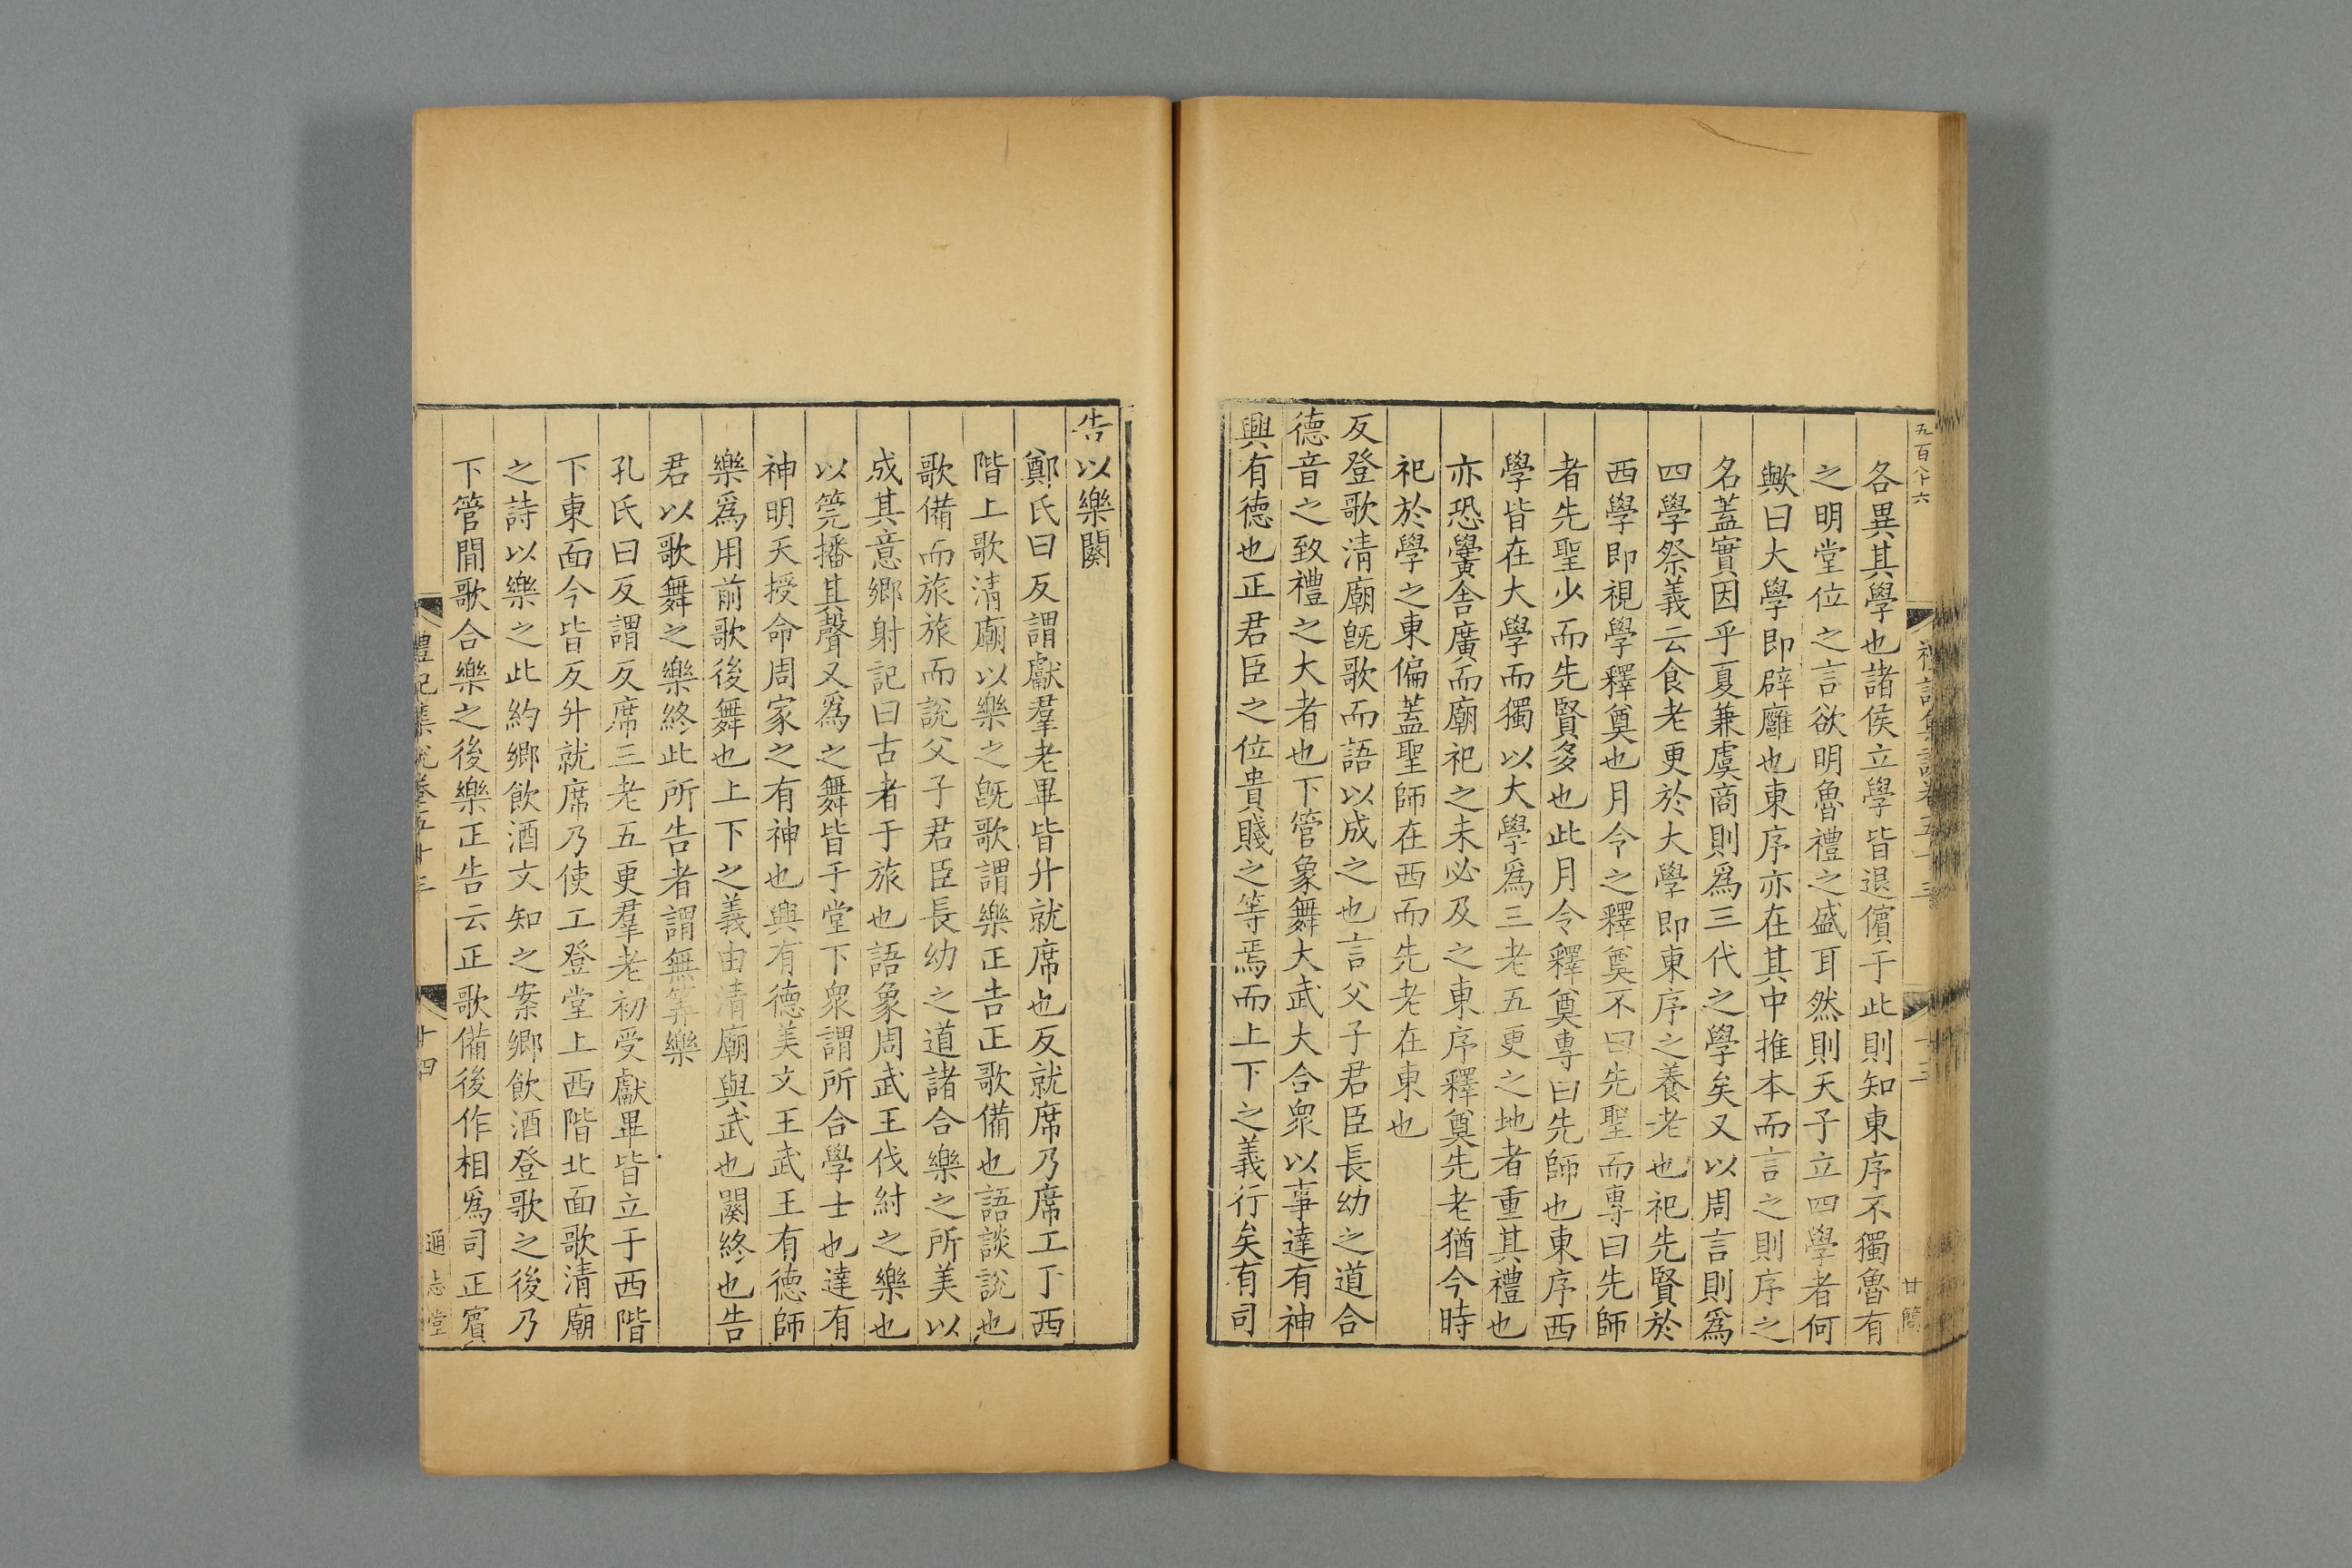 五百八十六
禮記集說卷五十三
十三
各異其學也諸侯立學皆退儐于此則知東序不獨魯有
之明堂位之言欲明魯禮之盛耳然則天子立四學者何
歟曰大學即辟廱也東序亦在其中推本而言之則序之
名蓋實因乎夏兼虞商則爲三代之學矣又以周言則爲
四學祭義云食老更於大學即東序之養老也祀先賢於
西學即視學釋奠也月令之釋奠不曰先聖而專曰先師
者先聖少而先賢多也此月令釋奠專曰先師也東序西
學皆在大學而獨以大學爲三老五更之地者重其禮也
亦恐黌舍廣而廟祀之未必及之東序釋奠先老猶今時
祀於學之東偏蓋聖師在西而先老在東也
反登歌清廟旣歌而語以成之也言父子君臣長幼之道合
德音之致禮之大者也下管象舞大武大合衆以事達有神
興有德也正君臣之位貴賤之等焉而上下之義行矣有司
告以樂闋
鄭氏曰反謂獻羣老畢皆升就席也反就席乃席工于西
階上歌清廟以樂之旣歌謂樂正告正歌備也語談說也
歌備而旅旅而說父子君臣長幼之道諸合樂之所美以
成其意鄉射記曰古者于旅也語象周武王伐紂之樂也
以筦播其聲又爲之舞皆于堂下衆謂所合學士也達有
神明天授命周家之有神也興有德美文王武王有德師
樂爲用前歌後舞也上下之義由清廟與武也闋終也告
君以歌舞之樂終此所告者謂無筭樂
孔氏曰反謂反席三老五更羣老初受獻畢皆立于西階
下東面今皆反升就席乃使工登堂上西階北面歌清廟
之詩以樂之此約鄉飲酒文知之案鄉飲酒登歌之後乃
下管間歌合樂之後樂正告云正歌備後作相爲司正賓
禮記集說卷五十三
十四
通志堂